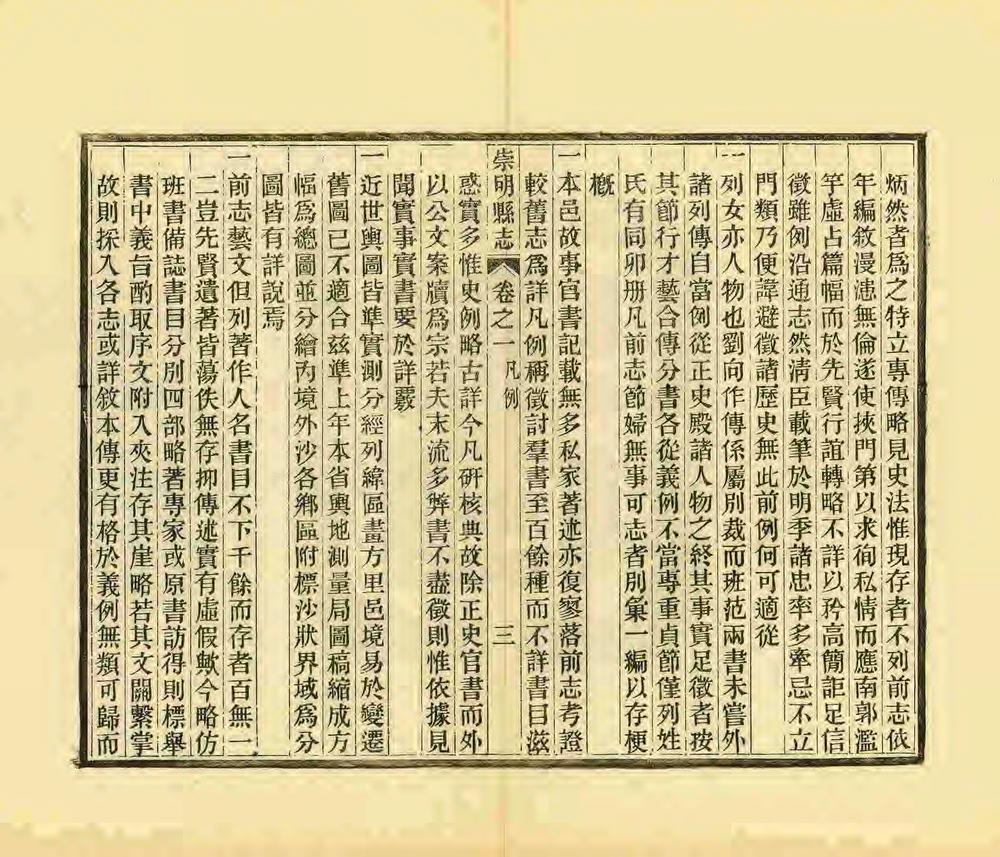 炳然者爲之特立專傳略見史法惟現存者不列前志依
年編敘漫漶無倫遂使挾門第以求徇私情而應南郭濫
竽虛占篇幅而於先賢行誼轉略不詳以矜高簡詎足信
徵雖例沿通志然清臣載筆於明季諸忠率多牽忌不立
門類乃便諱避徵諸歷史無此前例何可適從
一列女亦人物也劉向作傳係屬別裁而班范兩書未嘗外
諸列傳自當例從正史殿諸人物之終其事實足徵者按
其節行才藝合傳分書各從義例不當專重貞節僅列姓
氏有同卯册凡前志節婦無事可志者別彙一編以存梗
槪
一本邑故事官書記載無多私家著述亦復寥落前志考證
較舊志爲詳凡例稱徵討羣書至百餘種而不詳書目滋
崇明縣志 卷之一 凡例 三
惑實多惟史例略古詳今凡硏核典故除正史官書而外
以公文案牘爲宗若夫末流多弊書不盡徵則惟依據見
聞實事實書要於詳覈
一近世輿圖皆準實測分經列緯區畫方里邑境易於變遷
舊圖已不適合茲準上年本省輿地測量局圖稿縮成方
幅爲總圖並分繪內境外沙各鄉區附標沙狀界域爲分
圖皆有詳說焉
一前志藝文但列著作人名書目不下千餘而存者百無一
二豈先賢遺著皆蕩佚無存抑傳述實有虛假歟今略仿
班書備誌書目分別四部略著專家或原書訪得則標舉
書中義旨酌取序文附入夾注存其崖略若其文關繫掌
故則採入各志或詳敘本傳更有格於義例無類可歸而